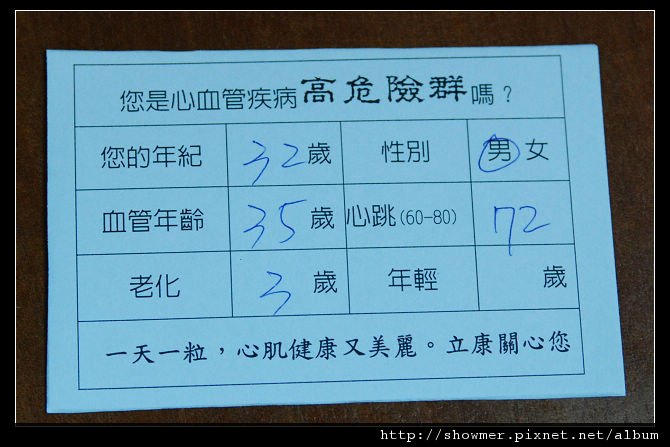 您是心血管疾病高危險群嗎？
您的年紀 32歲 性別 男 女
血管年齡 35歲 心跳(60-80) 72
老化 3歲 年輕 歲
一天一粒，心肌健康又美麗。立康關心您
http://showmer.pixnet.net/album